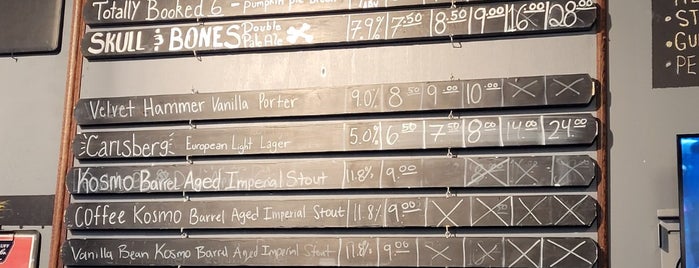 Totally Booked 6 - Pumpkin Pie
SKULL & BONES Double Pale Ale 7.9% 7.50 8.50 9.00 16.00 28.00
Velvet Hammer Vanilla Porter 9.0% 8.50 9.00 10.00 X X
Carlsberg European Light Lager 5.0% 6.50 7.50 8.00 14.00 24.00
Kosmo Barrel Aged Imperial Stout 11.8% 9.00
Coffee Kosmo Barrel Aged Imperial Stout 11.8% 9.00 X X X X
Vanilla Bean Kosmo Barrel Aged Imperial Stout 11.8% 9.00 X X X X
ST
GU
PE